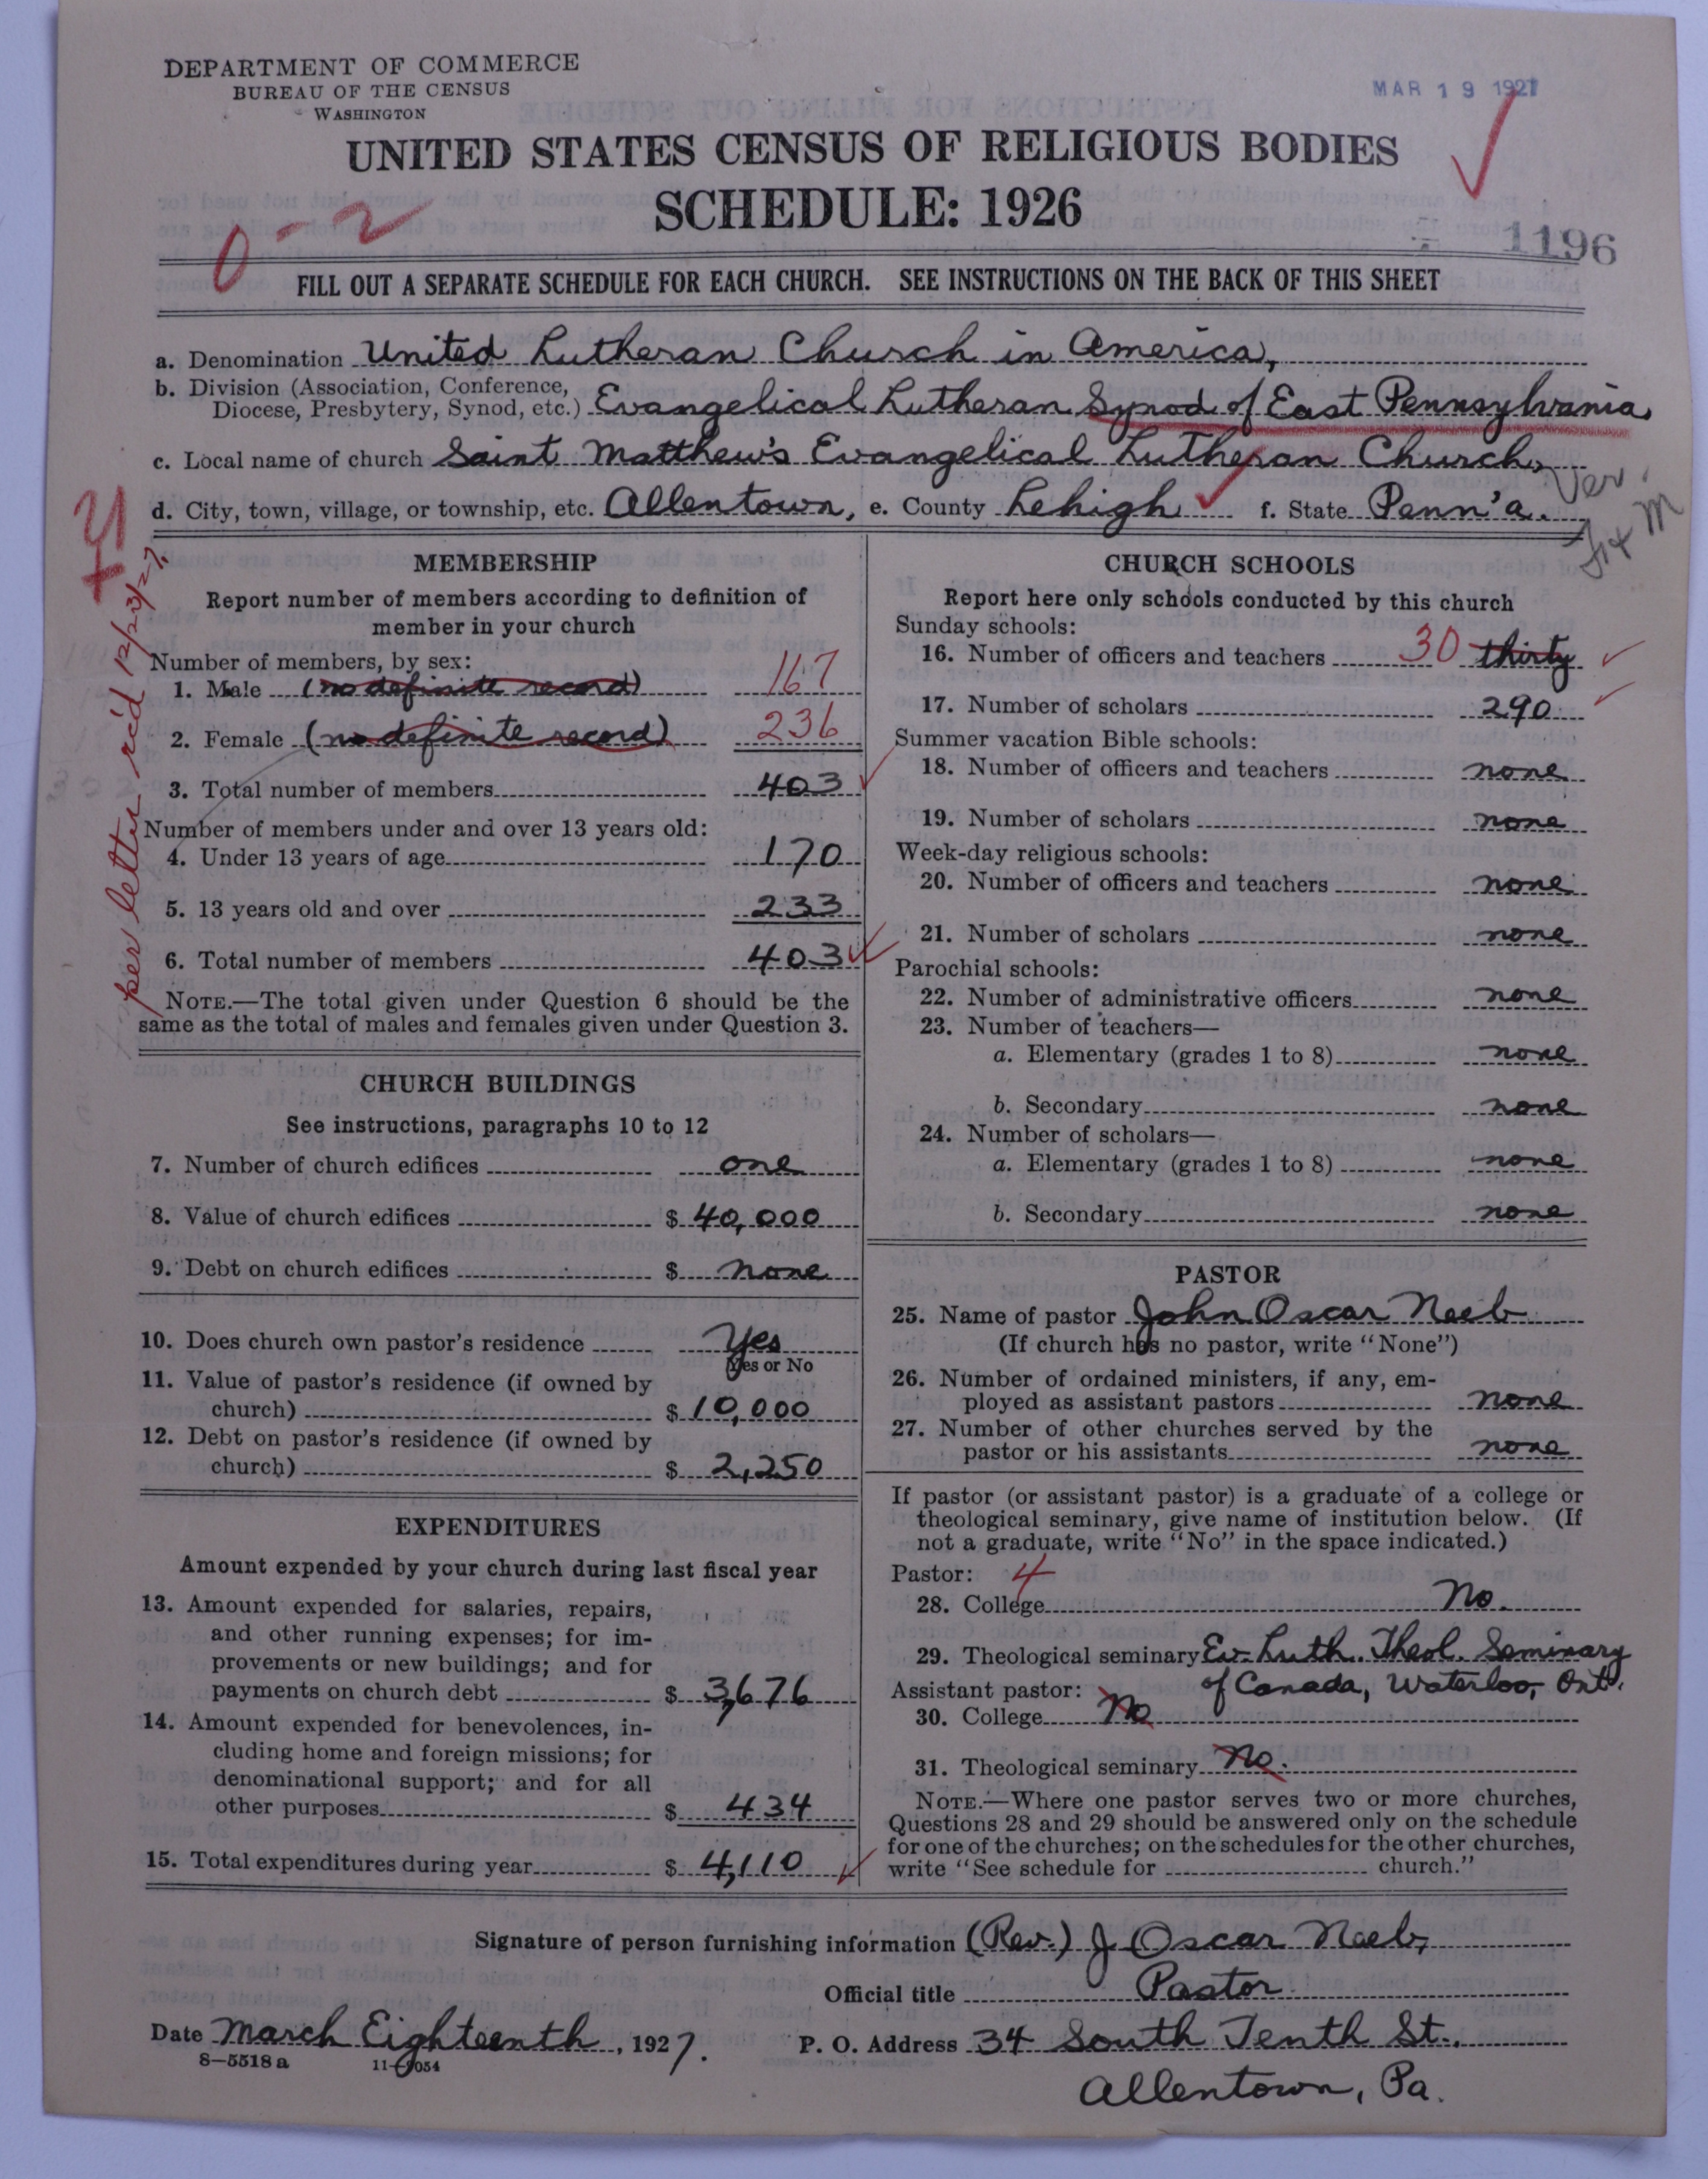 DEPARTMENT OF COMMERCE
BUREAU OF THE CENSUS
WASHINGTON
MAR 19 1927
UNITED STATES CENSUS OF RELIGIOUS BODIES
SCHEDULE: 1926
0-2
1196
FILL OUT A SEPARATE SCHEDULE FOR EACH CHURCH. SEE INSTRUCTIONS ON THE BACK OF THIS SHEET
a. Denomination United Lutheran Church in America,
b. Division (Association, Conference, Diocese, Presbytery, Synod, etc.) Evangelical Lutheran Synod of East Pennsylvania
c. Local name of church Saint Matthew's Evangelical Lutheran Church,
d. City, town, village, or township, etc. Allentown, e. County Lehigh f. State Penn'a.
Ver.
per letter rc'd 12/23/27.
MEMBERSHIP
Report number of members according to definition of
member in your church
Number of members, by sex:
1. Male (no definite record) 167
2. Female (no definite record) 236
3. Total number of members 403
Number of members under and over 13 years old:
4. Under 13 years of age 170
5. 13 years old and over 233
6. Total number of members 403
NOTE.—The total given under Question 6 should be the
same as the total of males and females given under Question 3.
CHURCH BUILDINGS
See instructions, paragraphs 10 to 12
7. Number of church edifices one
8. Value of church edifices $ 40,000
9. Debt on church edifices $ none
10. Does church own pastor's residence Yes
Yes or No
11. Value of pastor's residence (if owned by
church) $ 10,000
12. Debt on pastor's residence (if owned by
church) $ 2,250
EXPENDITURES
Amount expended by your church during last fiscal year
13. Amount expended for salaries, repairs,
and other running expenses; for im-
provements or new buildings; and for
payments on church debt $ 3,676
14. Amount expended for benevolences, in-
cluding home and foreign missions; for
denominational support; and for all
other purposes $ 434
15. Total expenditures during year $ 4,110
CHURCH SCHOOLS
Report here only schools conducted by this church
Sunday schools:
16. Number of officers and teachers 30 thirty
17. Number of scholars 290
Summer vacation Bible schools:
18. Number of officers and teachers none
19. Number of scholars none
Week-day religious schools:
20. Number of officers and teachers none
21. Number of scholars none
Parochial schools:
22. Number of administrative officers none
23. Number of teachers—
a. Elementary (grades 1 to 8) none
b. Secondary none
24. Number of scholars—
a. Elementary (grades 1 to 8) none
b. Secondary none
PASTOR
25. Name of pastor John Oscar Neeb
(If church has no pastor, write "None")
26. Number of ordained ministers, if any, em-
ployed as assistant pastors none
27. Number of other churches served by the
pastor or his assistants none
If pastor (or assistant pastor) is a graduate of a college or
theological seminary, give name of institution below. (If
not a graduate, write "No" in the space indicated.)
Pastor: 4
28. College No.
29. Theological seminary Ev. Luth. Theol. Seminary
of Canada, Waterloo, Ont.
Assistant pastor:
30. College No
31. Theological seminary No.
NOTE.—Where one pastor serves two or more churches,
Questions 28 and 29 should be answered only on the schedule
for one of the churches; on the schedules for the other churches,
write "See schedule for church."
Signature of person furnishing information (Rev.) J. Oscar Neeb,
Official title Pastor
Date March Eighteenth, 1927. P. O. Address 34 South Tenth St.,
8-5518a 11-9054
Allentown, Pa.